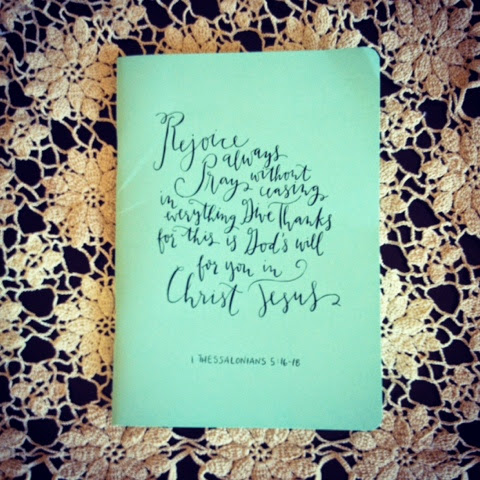 Rejoice
always
Pray without
ceasing
in everything Give Thanks
for this is God's will
for you in
Christ Jesus
1 THESSALONIANS 5:16-18